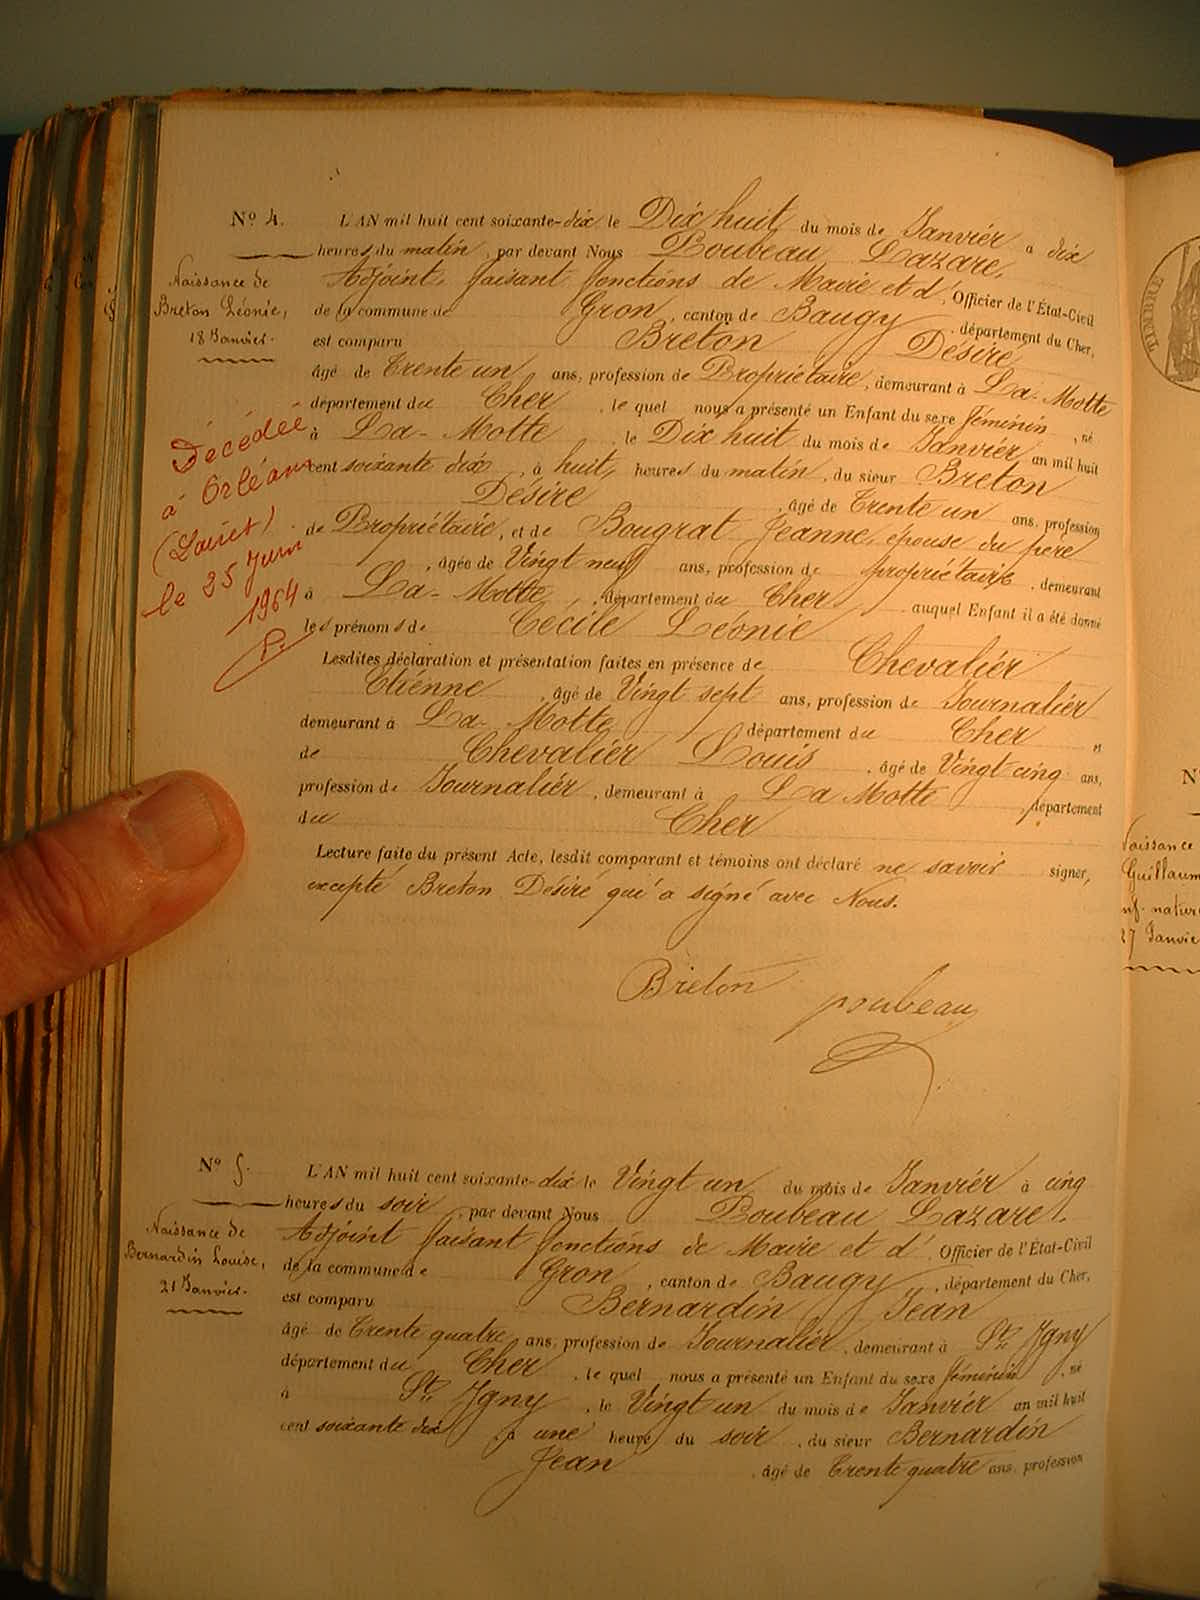 N° 4.
L'AN mil huit cent soixante-dix le Dix huit du mois de Janvier à dix
heures du matin, par devant Nous Boubeau Lazare,
Adjoint, faisant fonctions de Maire et d', Officier de l'État-Civil
de la commune de Gron, canton de Baugy, département du Cher,
est comparu Breton Désiré
âgé de Trente un ans, profession de Propriétaire, demeurant à La-Motte
département du Cher, lequel nous a présenté un Enfant du sexe féminin, né
à La-Motte, le Dix huit du mois de Janvier an mil huit
cent soixante dix, à huit heures du matin, du sieur Breton
Désiré, âgé de Trente un ans, profession
de Propriétaire, et de Bougrat Jeanne, épouse du père
, âgée de Vingt neuf ans, profession de propriétaire, demeurant
à La-Motte, département du Cher, auquel Enfant il a été donné
les prénoms de Cécile Léonie
Lesdites déclaration et présentation faites en présence de Chevalier
Etienne, âgé de Vingt sept ans, profession de Journalier
demeurant à La-Motte département du Cher et
de Chevalier Louis, âgé de Vingt cinq ans,
profession de Journalier, demeurant à La Motte, département
du Cher
Lecture faite du présent Acte, lesdit comparant et témoins ont déclaré ne savoir signer,
excepté Breton Désiré qui a signé avec Nous.
Breton poubeau
Naissance de
Breton Léonie,
18 Janvier.
Décédée
à Orléans
(Loiret)
le 25 Juin
1964
N° 5.
L'AN mil huit cent soixante-dix le Vingt un du mois de Janvier à cinq
heures du soir, par devant Nous Boubeau Lazare,
Adjoint faisant fonctions de Maire et d', Officier de l'État-Civil
de la commune de Gron, canton de Baugy, département du Cher,
est comparu Bernardin Jean
âgé de Trente quatre ans, profession de Journalier, demeurant à St Igny
département du Cher, lequel nous a présenté un Enfant du sexe féminin, né
à St Igny, le Vingt un du mois de Janvier an mil huit
cent soixante dix à une heure du soir, du sieur Bernardin
Jean, âgé de Trente quatre ans, profession
Naissance de
Bernardin Louise,
21 Janvier.
TIMBRE
N°
Naissance
Guillaum
nf. natur
27 Janvie